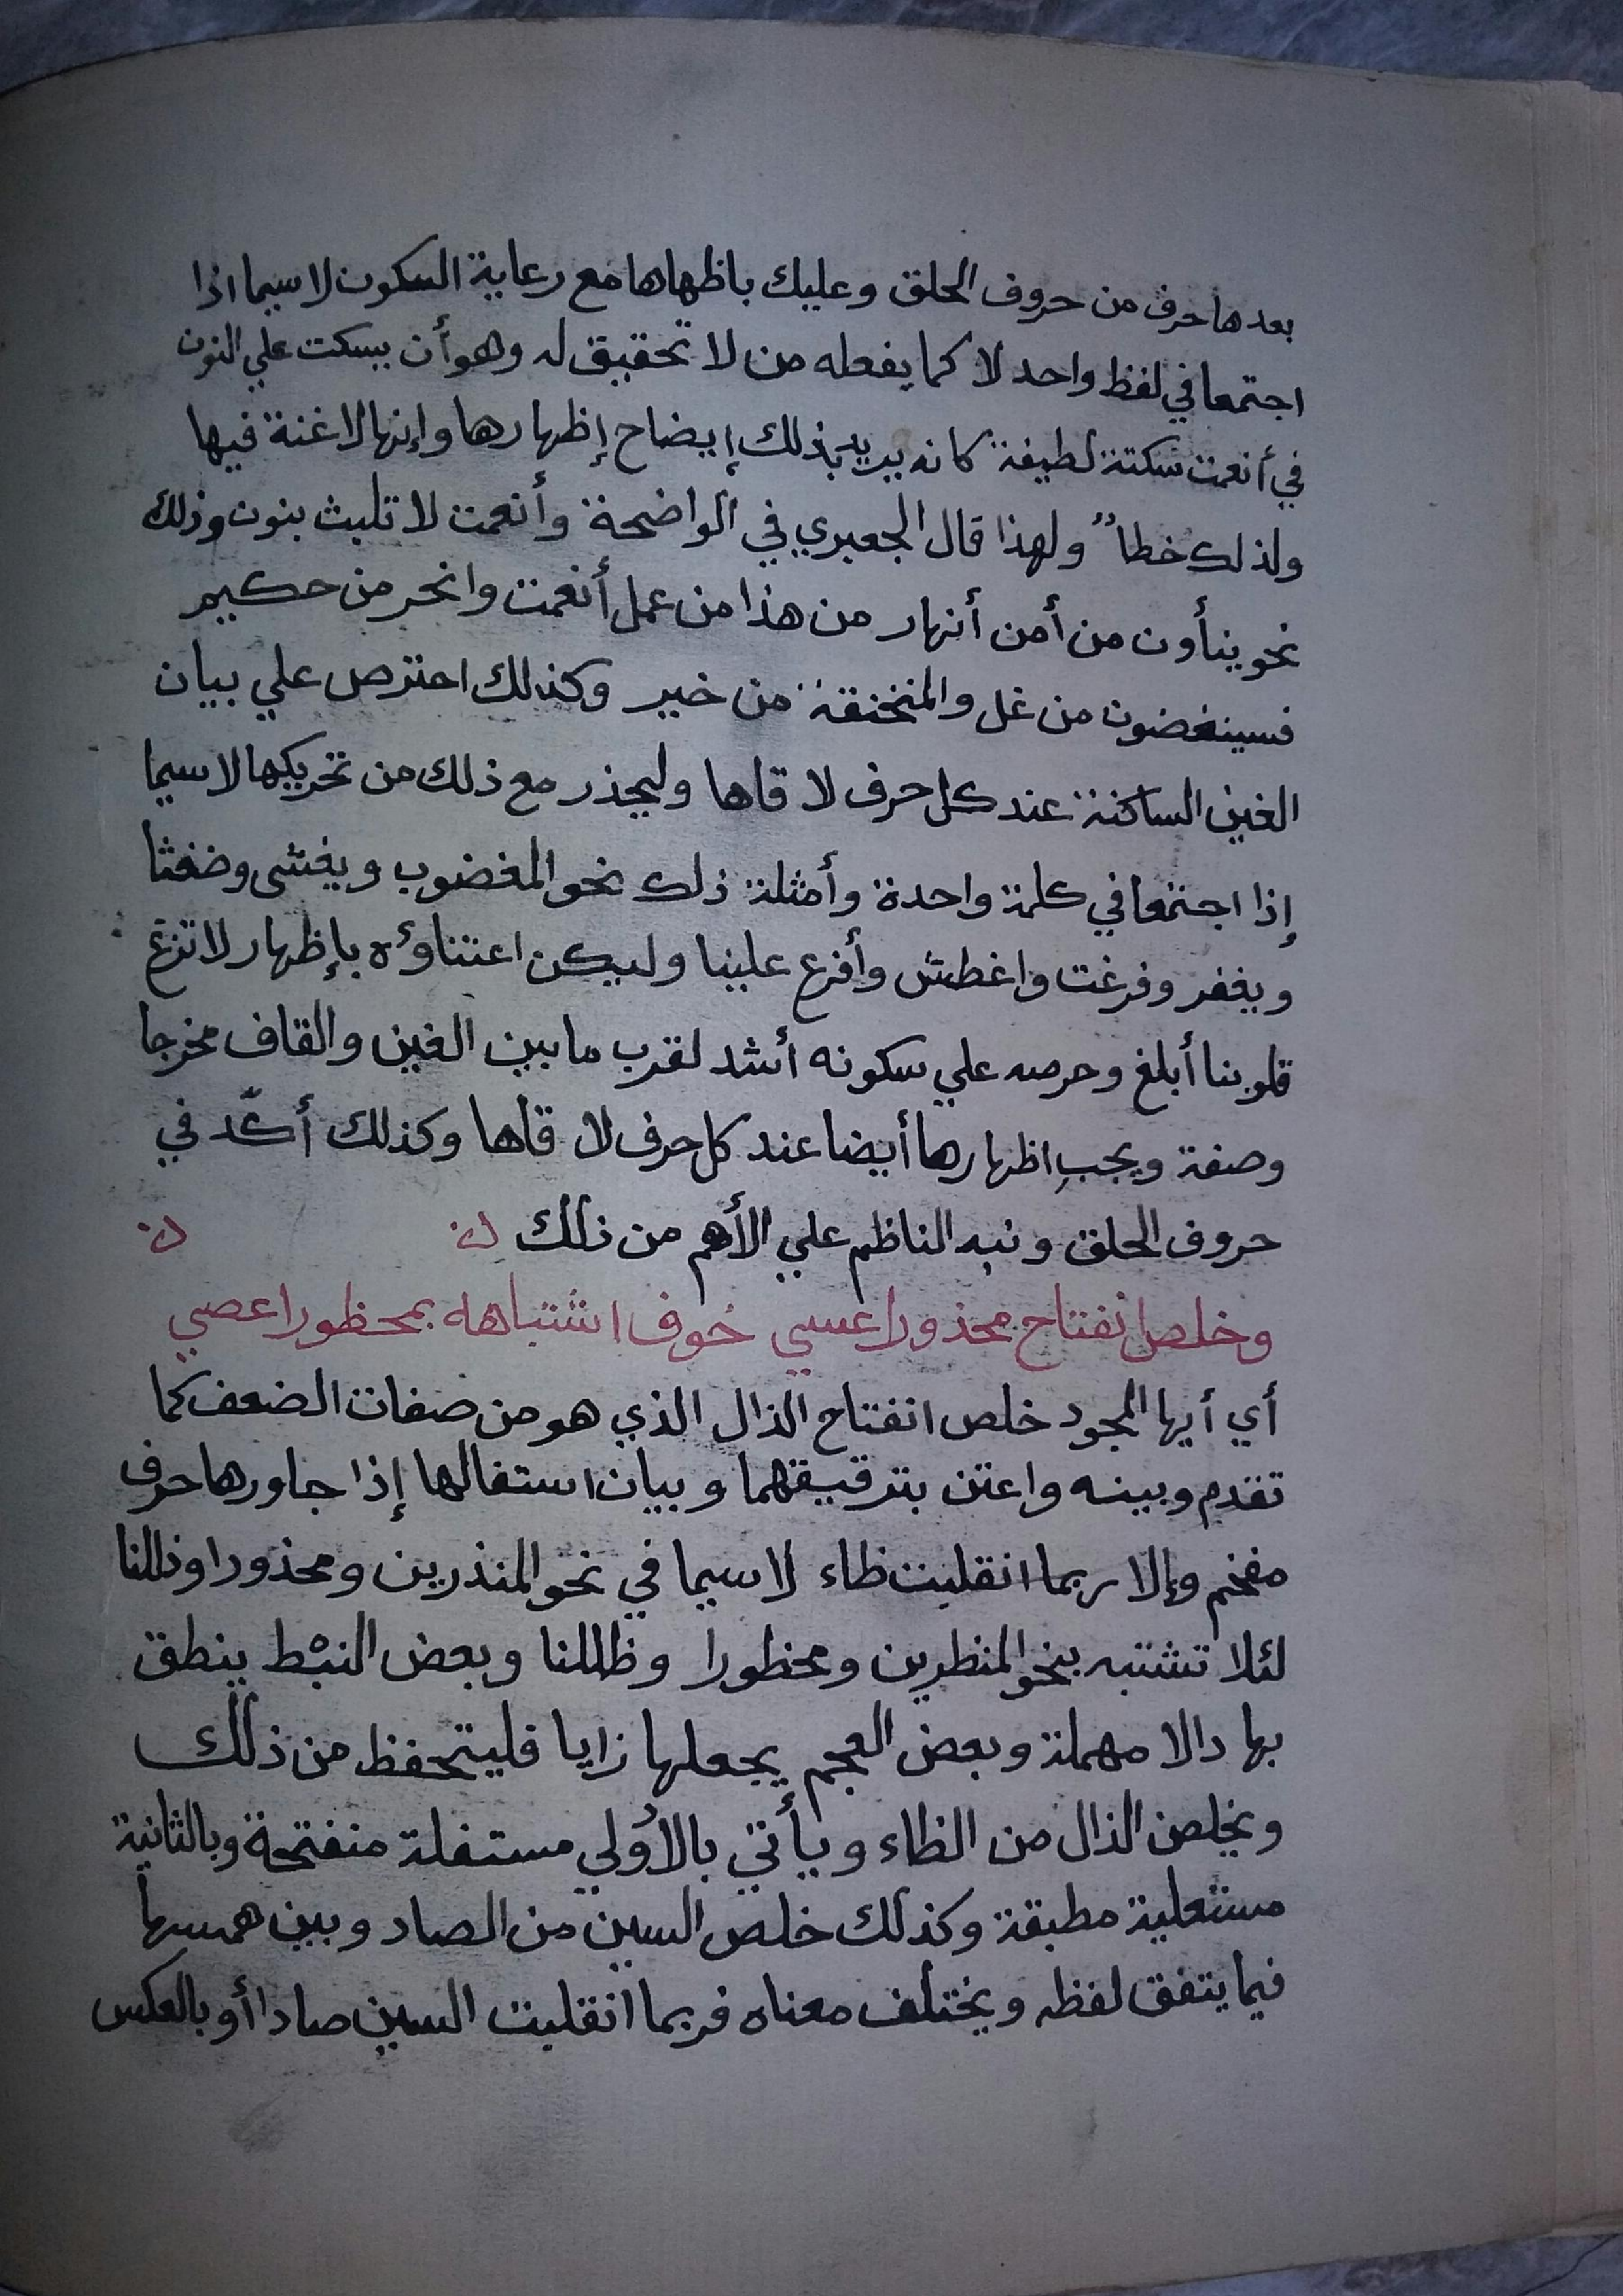 بعدها حرف من حروف الحلق وعليك باظهاها مع رعاية السكون لا سيما اذا
اجتمعا في لفظ واحد لا كما يفعله من لا تحقيق له وهو أن يسكت علي النون
في أنعمت سكتة لطيفة كانه يريد بذلك إيضاح إظهارها وإنها لا غنة فيها
ولذلك خطأ ولهذا قال الجعبري في الواضحة وأنعمت لا تلبث بنون وذلك
نحو ينأون من أمن أنهار من هذا من عمل أنعمت وانحر من حكيم
فسينغضون من غل والمنخنقة من خير وكذلك احترص علي بيان
الغين الساكنة عند كل حرف لاقاها وليحذر مع ذلك من تحريكها لا سيما
إذا اجتمعا في كلمة واحدة وأمثلة ذلك نحو المغضوب ويغشى وضغثا
ويغفر وفرغت واغطش وأفرغ علينا وليكن اعتناؤه بإظهار لا تزغ
قلوبنا أبلغ وحرصه علي سكونه أشد لقرب ما بين الغين والقاف مخرجا
وصفة ويجب اظهارها أيضا عند كل حرف لاقاها وكذلك أكّد في
حروف الحلق ونبه الناظم علي الأهم من ذلك
وخلص انفتاح محذورا عسي خوف اشتباهه بمحظورا عصي
أي أيها المجود خلص انفتاح الذال الذي هو من صفات الضعف كما
تقدم وبينه واعتن بترقيقهما وبيان استفالها إذا جاورها حرف
مفخم وإلا ربما انقلبت ظاء لا سيما في نحو المنذرين ومحذورا وذللنا
لئلا تشتبه بنحو المنظرين ومحظورا وظللنا وبعض النبْط ينطق
بها دالا مهملة وبعض العجم يجعلها زايا فليتحفظ من ذلك
ويخلص الذال من الظاء ويأتي بالأولي مستفلة منفتحة وبالثانية
مستعلية مطبقة وكذلك خلص السين من الصاد وبين همسها
فيما يتفق لفظه ويختلف معناه فربما انقلبت السين صادا أو بالعكس